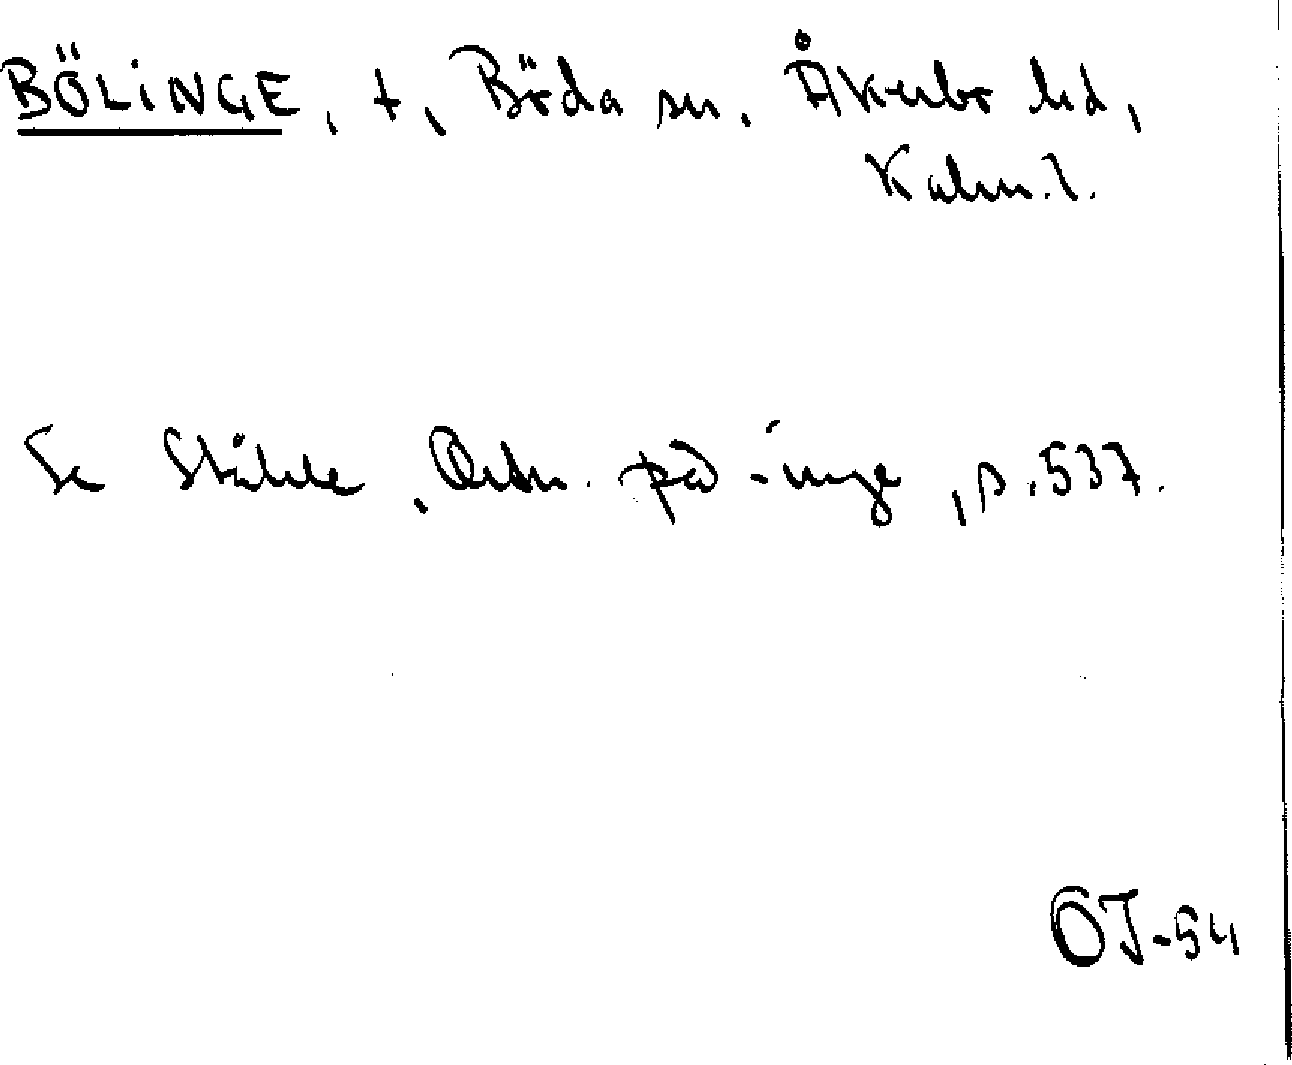 BÖLINGE, t, Böda sn. Åkerbo hd,
Kalm. l.
Se Ståhle, Ortn. på -inge, s. 537.
OJ-54